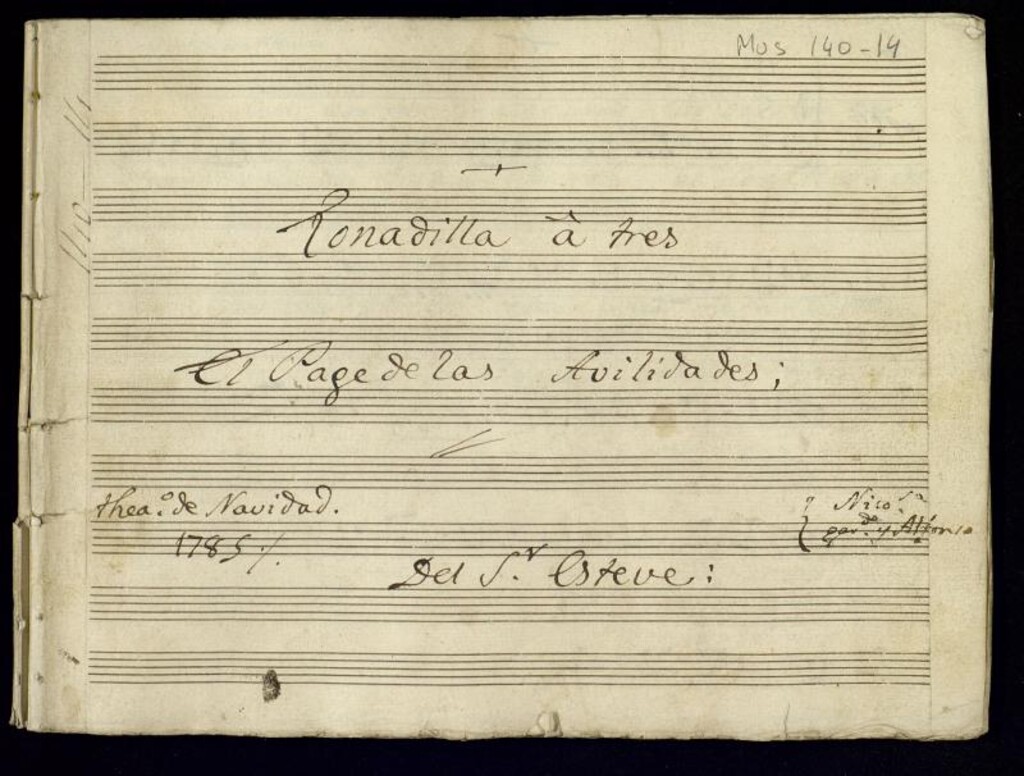 Mus 140-14
Tonadilla â tres
El Page de las Avilidades;
thea.º de Navidad.
1785
Nico.sa
gar.do y Alfonso
Del S.r Esteve: